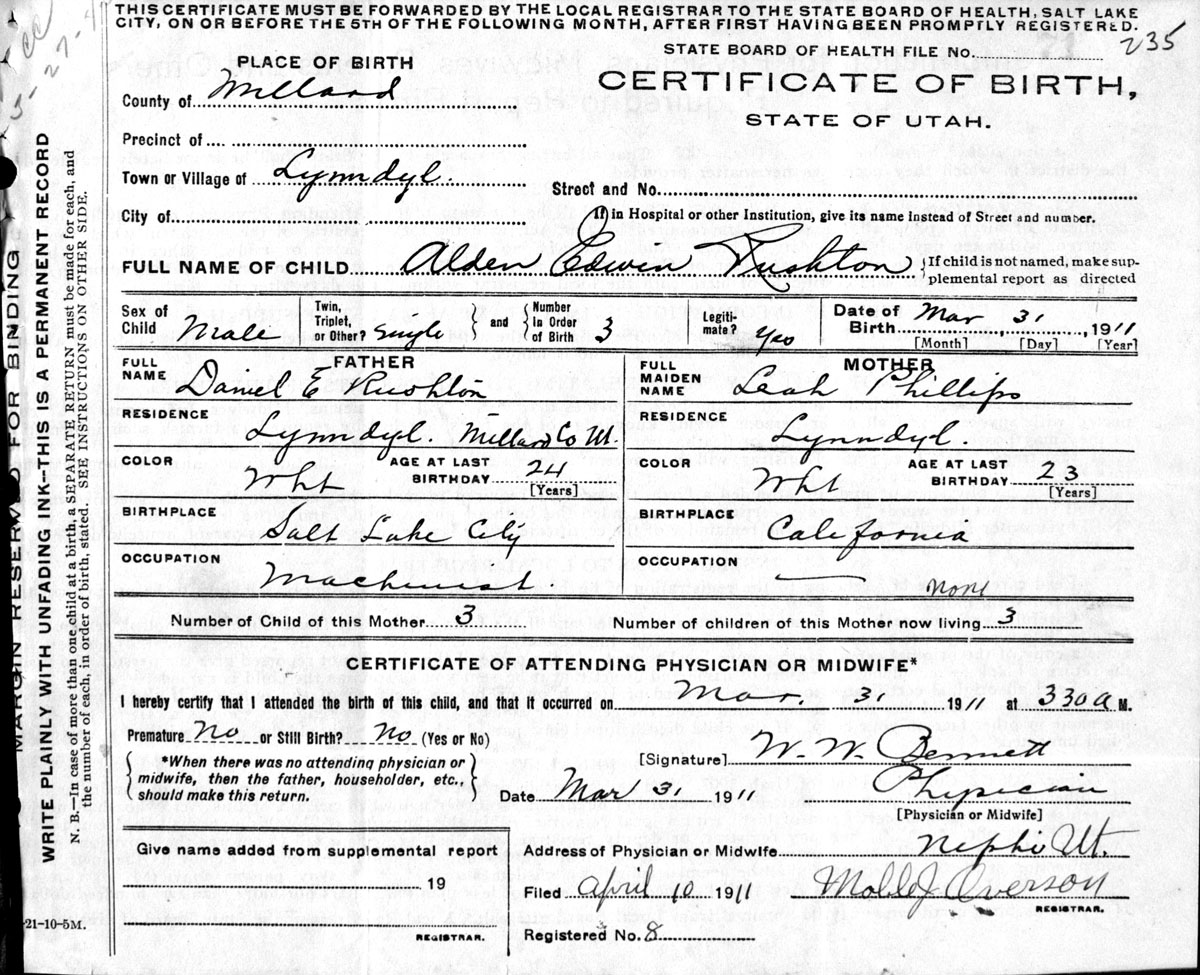 THIS CERTIFICATE MUST BE FORWARDED BY THE LOCAL REGISTRAR TO THE STATE BOARD OF HEALTH, SALT LAKE
CITY, ON OR BEFORE THE 5TH OF THE FOLLOWING MONTH, AFTER FIRST HAVING BEEN PROMPTLY REGISTERED.
235
STATE BOARD OF HEALTH FILE NO.
PLACE OF BIRTH
CERTIFICATE OF BIRTH,
STATE OF UTAH.
County of Millard
Precinct of
Town or Village of Lynndyl.
Street and No.
City of
If in Hospital or other Institution, give its name instead of Street and number.
FULL NAME OF CHILD Alden Edwin Rushton {If child is not named, make sup-
plemental report as directed
Sex of Child Male
Twin, Triplet, or Other? Single } and { Number In Order of Birth 3
Legiti-mate? Yes
Date of Birth Mar, 31, 1911
[Month] [Day] [Year]
FATHER
FULL NAME Daniel E Rushton
MOTHER
FULL MAIDEN NAME Leah Phillips
RESIDENCE Lynndyl. Millard Co Ut.
RESIDENCE Lynndyl.
COLOR Wht AGE AT LAST BIRTHDAY 24 [Years]
COLOR Wht AGE AT LAST BIRTHDAY 23 [Years]
BIRTHPLACE Salt Lake City
BIRTHPLACE California
OCCUPATION Machinist.
OCCUPATION None
Number of Child of this Mother 3
Number of children of this Mother now living 3
CERTIFICATE OF ATTENDING PHYSICIAN OR MIDWIFE*
I hereby certify that I attended the birth of this child, and that it occurred on Mar. 31 1911 at 330 a M.
Premature No or Still Birth? No (Yes or No)
{ *When there was no attending physician or
midwife, then the father, householder, etc.,
should make this return. }
[Signature] W. W. Bennett
Date Mar 31 1911 Physician
[Physician or Midwife]
Give name added from supplemental report
19
REGISTRAR.
Address of Physician or Midwife Nephi Ut.
Filed April 10 1911
Overson
REGISTRAR.
Registered No. 8
-21-10-5M.
MARGIN RESERVED FOR BINDING
WRITE PLAINLY WITH UNFADING INK—THIS IS A PERMANENT RECORD
N. B.—In case of more than one child at a birth, a SEPARATE RETURN must be made for each, and
the number of each, in order of birth stated. SEE INSTRUCTIONS ON OTHER SIDE.